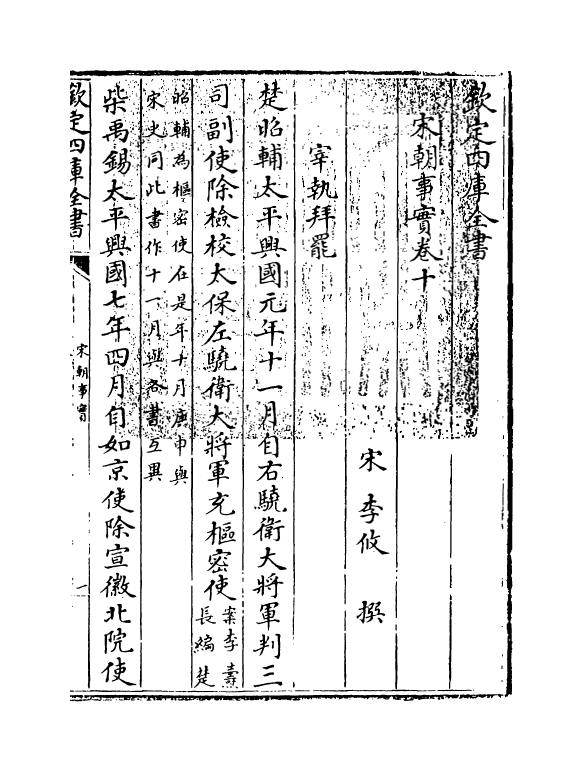 欽定四庫全書
宋朝事實卷十
宋 李攸 撰
宰執拜罷
楚昭輔太平興國元年十一月自右驍衛大將軍判三
司副使除檢校太保左驍衛大將軍充樞密使案李燾
長編楚
昭輔為樞密使在是年十月庚申與
宋史同此書作十一月與各書互異
柴禹錫太平興國七年四月自如京使除宣徽北院使
欽定四庫全書
宋朝事實
一